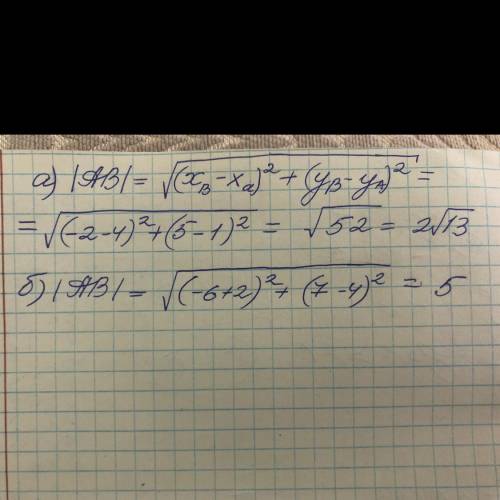 а) |AB| = √(x_B - x_a)² + (y_B - y_A)² =
= √(-2-4)² + (5-1)² = √52 = 2√13
б) |AB| = √(-6+2)² + (7-4)² = 5